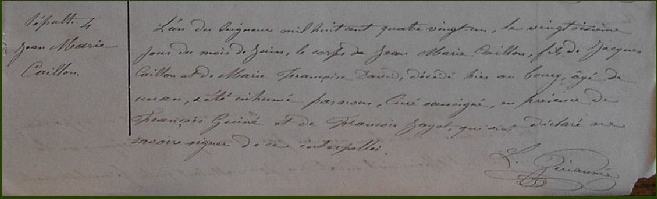 Sépult. 4
Jean Marie
Caillon.
L'an du Seigneur mil huit cent quatre vingt un, le vingt sixième
jour du mois de Juin, le corps de Jean Marie Caillon, fils de Jacques
Caillon et de Marie Françoise David, décédé hier au bourg, âgé de
un an, a été inhumé par nous, Curé soussigné, en présence de
François et de François qui ont déclaré ne
savoir signer de ce interpellés.